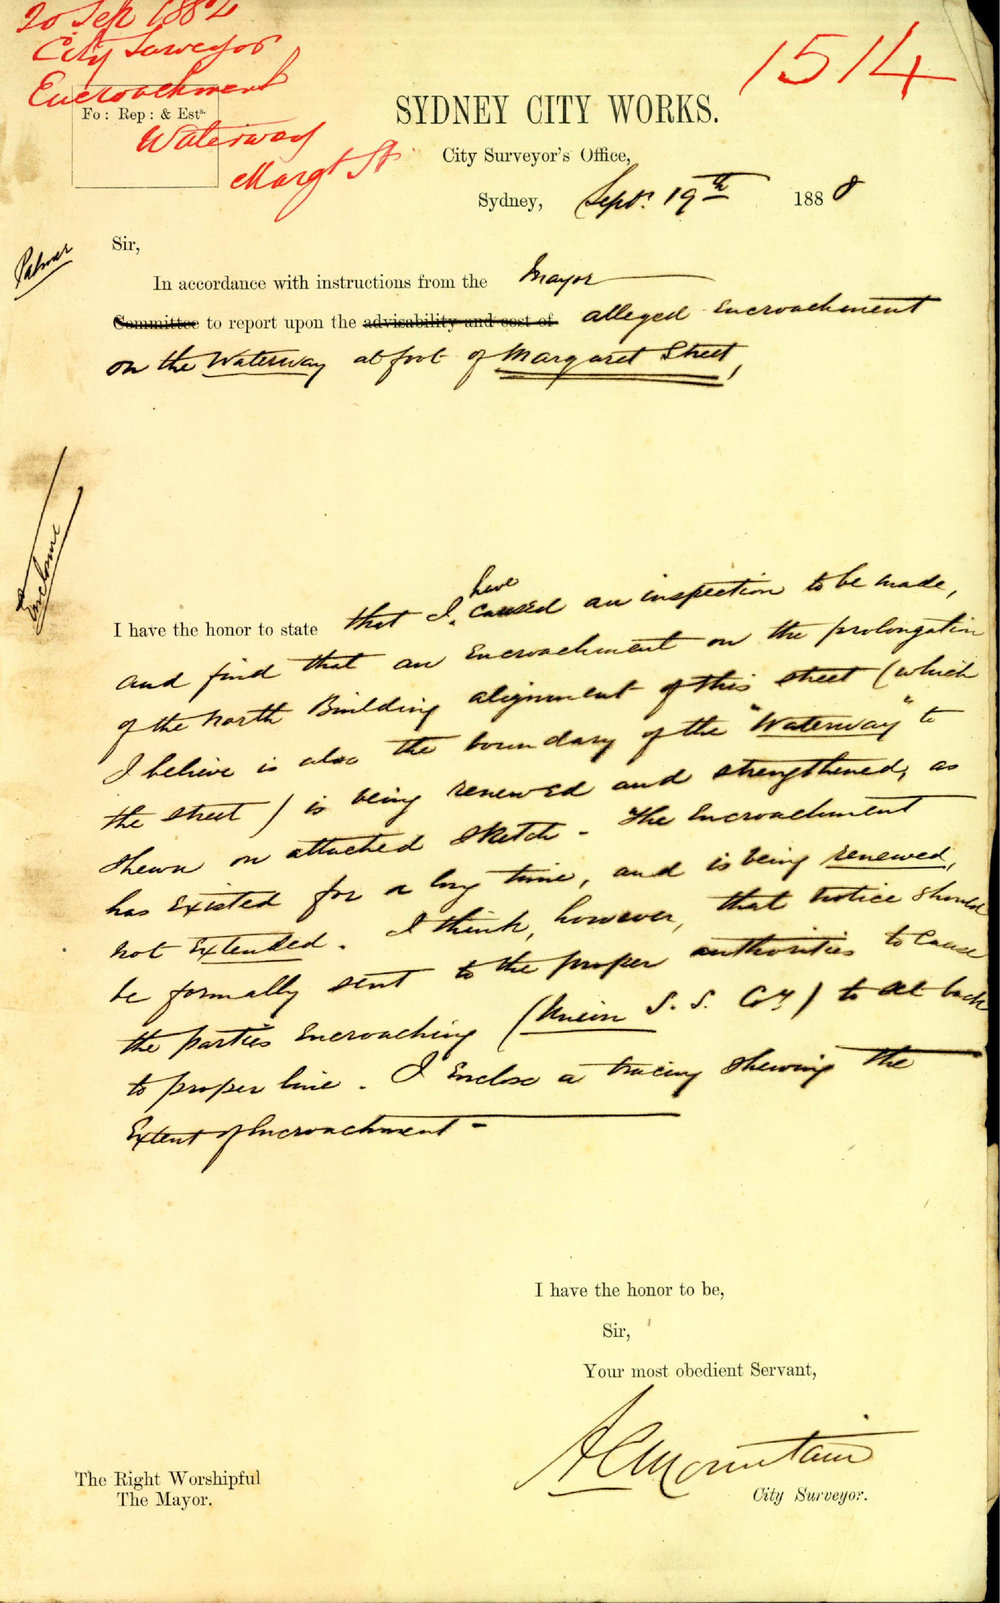 20 Sep 188
City Surveyor
Encroachment
Fo : Rep : & Ests.
Waterway
Margt St
1514
SYDNEY CITY WORKS.
City Surveyor's Office,
Sydney, Sepr. 19th 1888
Palmer
Sir,
In accordance with instructions from the Mayor
Committee to report upon the advisability and cost of alleged Encroachment
on the Waterway at foot of Margaret Street,
Enclosure
have
I have the honor to state that I caused an inspection to be made,
and find that an Encroachment on the prolongation
of the North Building alignment of this street (which
I believe is also the boundary of the "Waterway" to
the street) is being renewed and strengthened, as
shewn on attached sketch - The Encroachment
has existed for a long time, and is being renewed,
not Extended. I think, however, that notice should
be formally sent to the proper authorities to cause
the parties Encroaching (Union S. S. Coy.) to set back
to proper line. I Enclose a tracing shewing the
Extent of Encroachment -
I have the honor to be,
Sir,
Your most obedient Servant,
A C Mountain
City Surveyor.
The Right Worshipful
The Mayor.